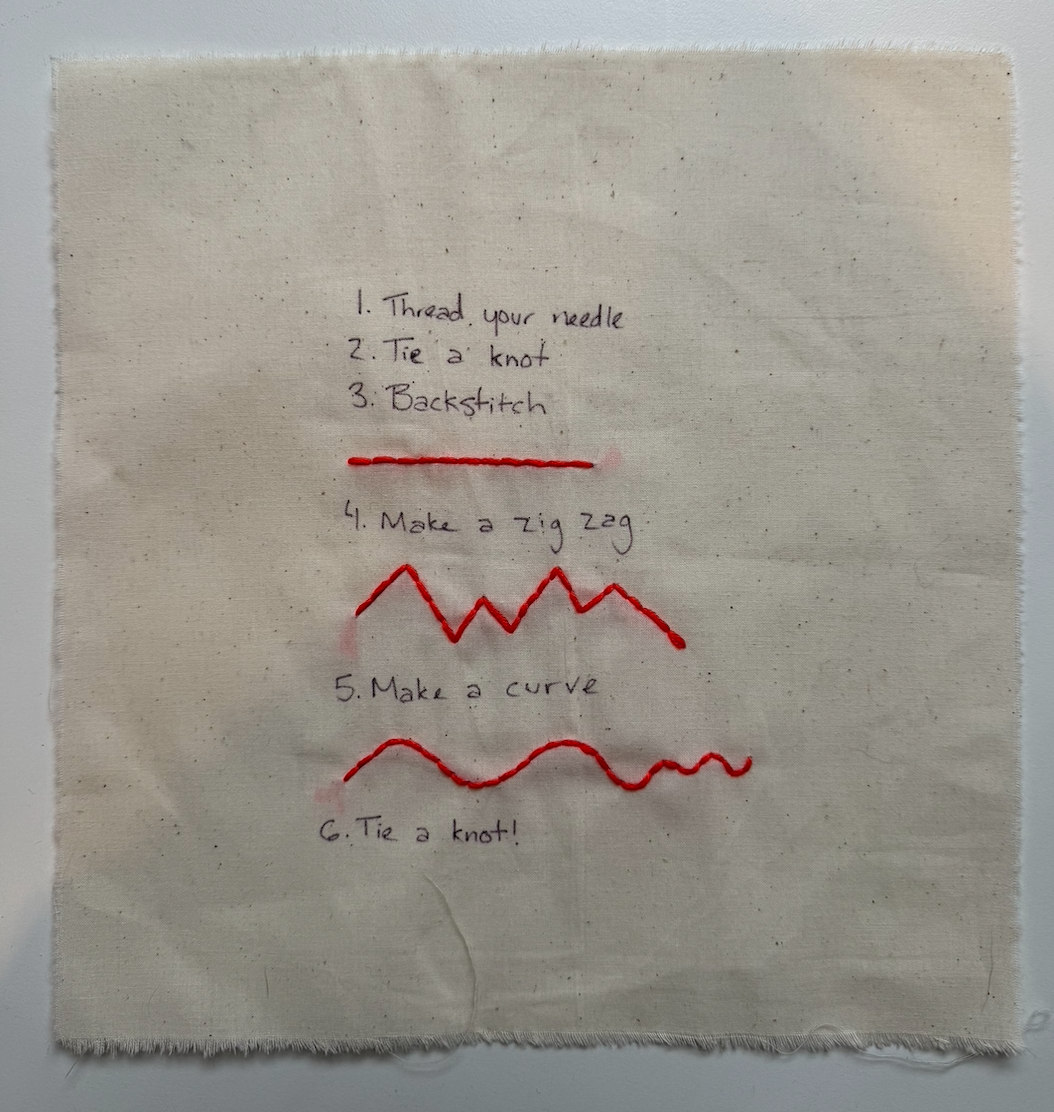 1. Thread your needle
2. Tie a knot
3. Backstitch
4. Make a zig zag
5. Make a curve
6. Tie a knot!